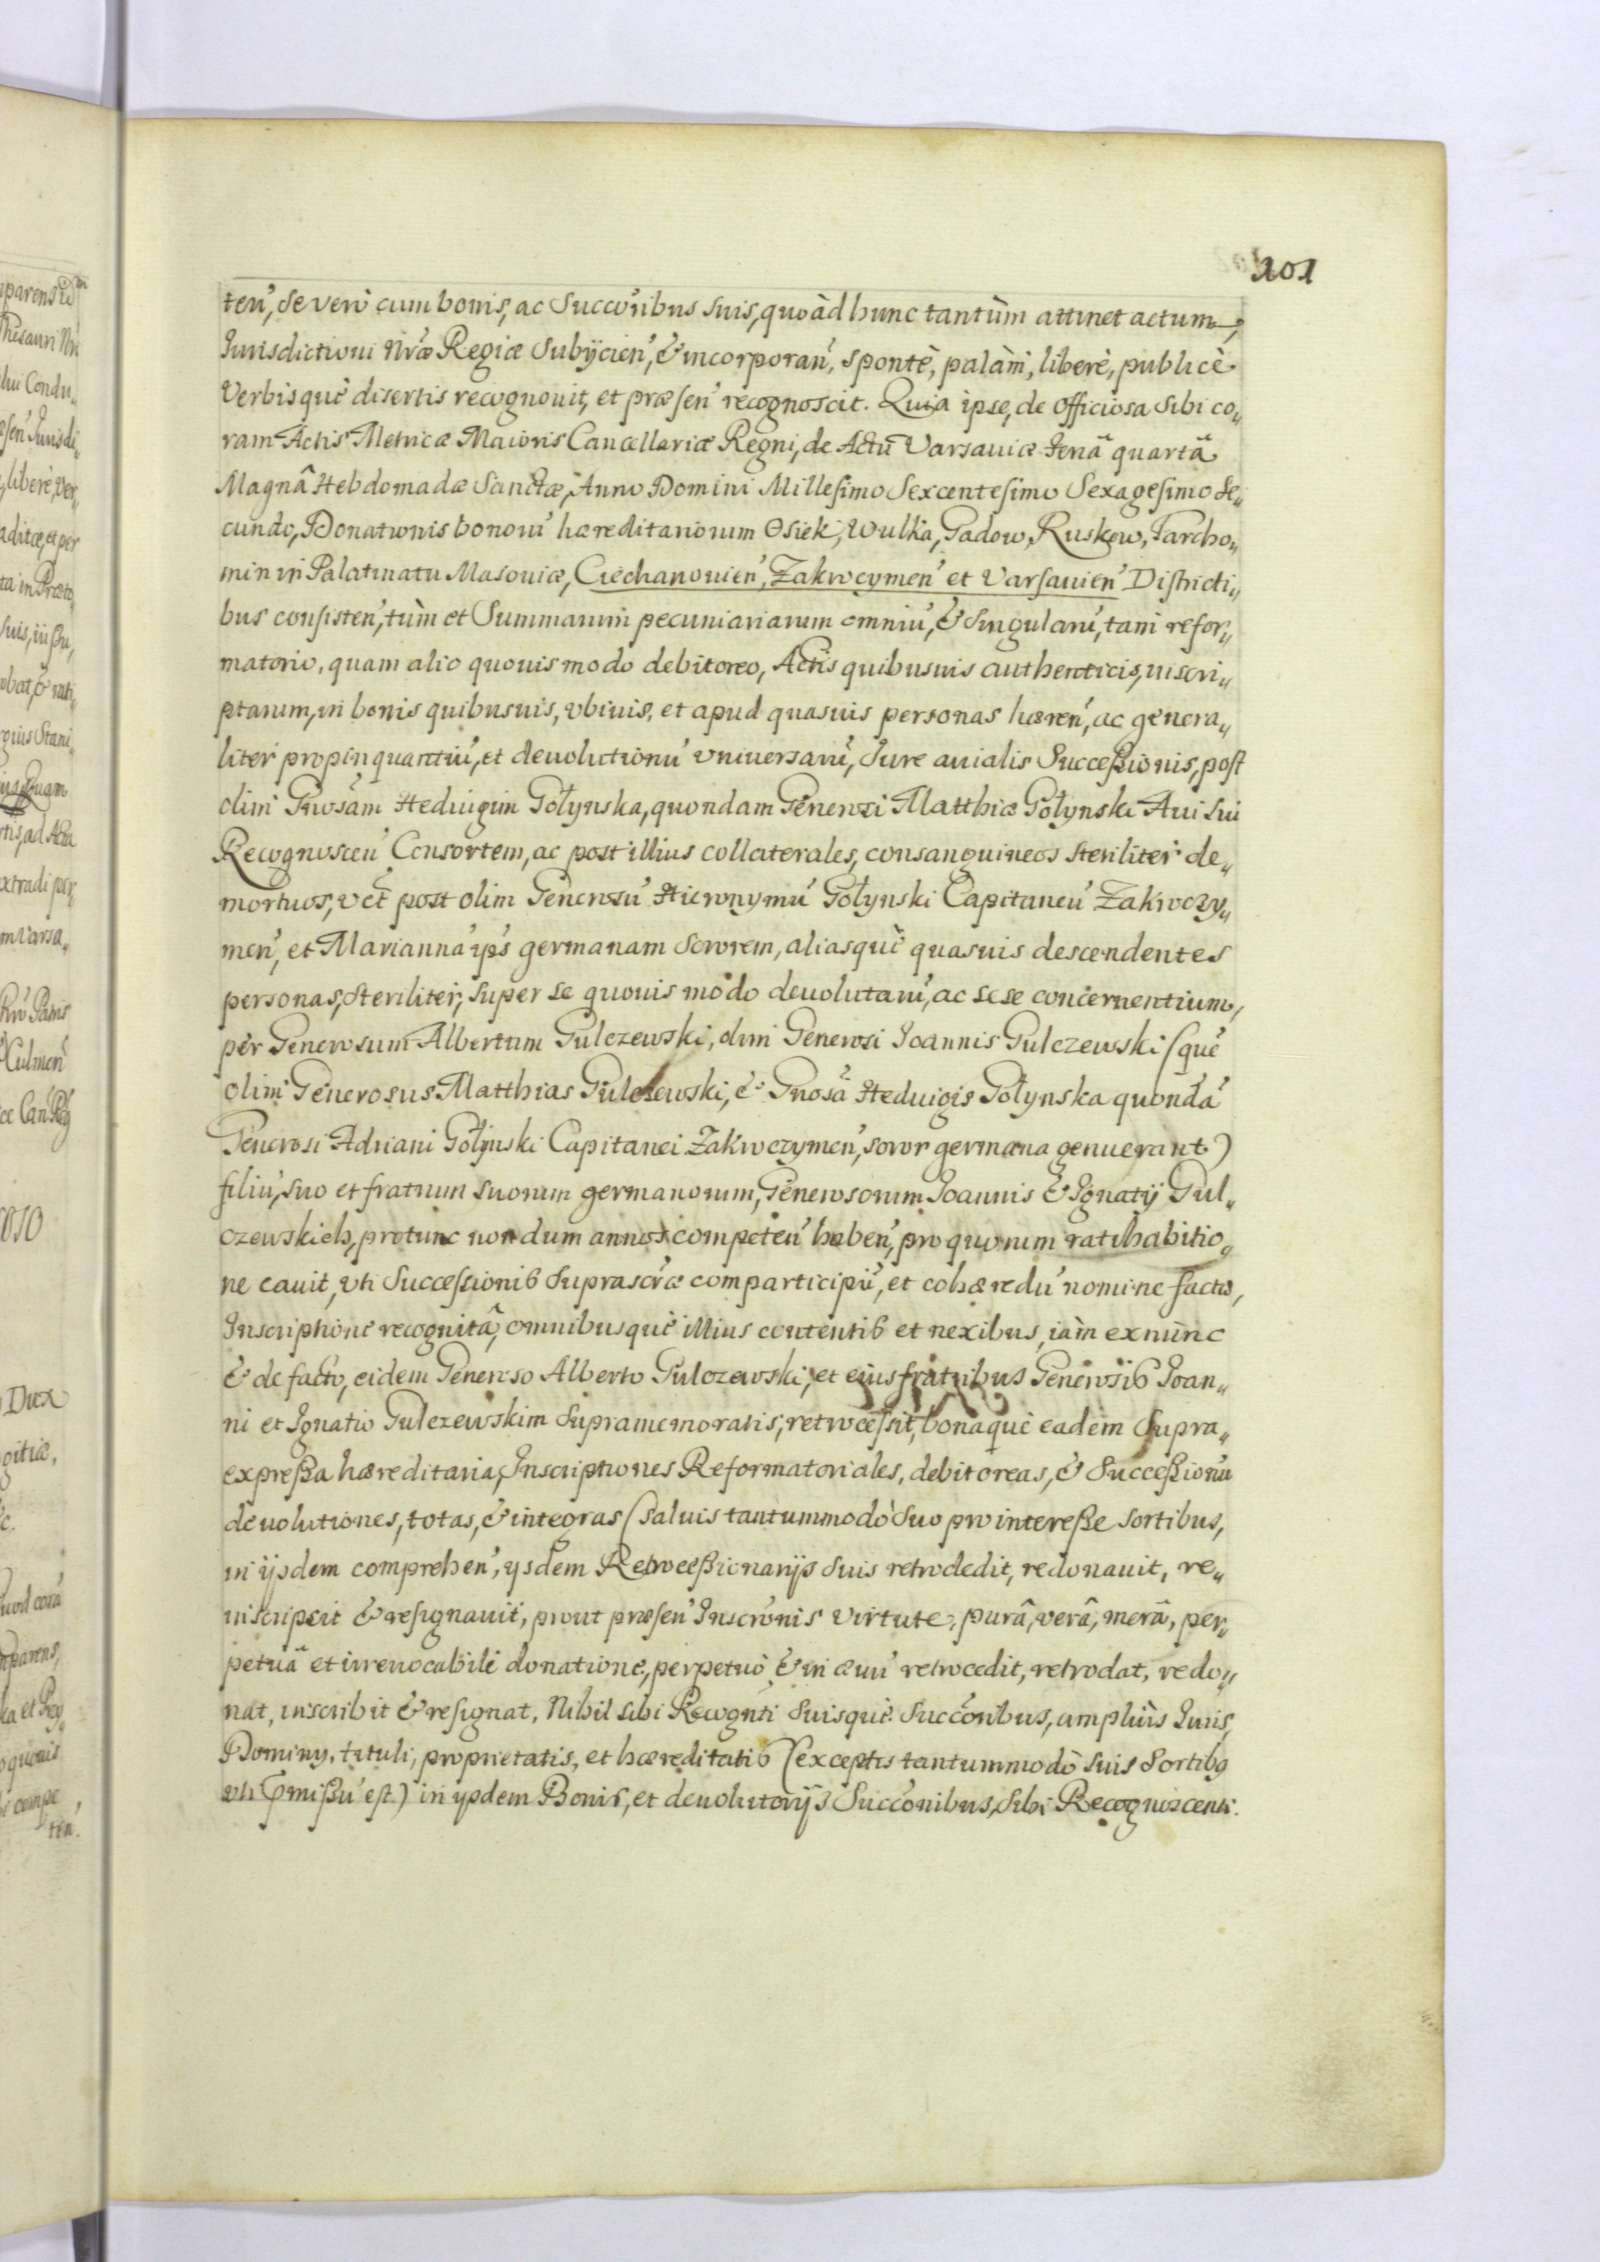 101
ten̄, se verò cum bonis, ac Succōribus suis, quoàd hunc tantùm attinet actum,
Iurisdictioni Nræ Regiæ Subijcien̄, & incorporan̄, spontè, palàm, liberè, publicè
Verbisquè disertis recognouit, et præsen̄ recognoscit. Quia ipse, de officiosa Sibi co„
ram Actis Metricæ Maioris Cancellariæ Regni, de Actu Varsauiæ Feriâ quartâ
Magnâ Hebdomadæ Sanctæ, Anno Domini Millesimo Sexcentesimo Sexagesimo Se„
cundo, Donationis bonorū hæreditariorum Osiek, Wulka, Gadow, Ruskow, Tarcho„
min in Palatinatu Masouiæ, Ciechanouien̄, Zakrocymen̄ et Varsauien̄ Districti„
bus consisten̄, tùm et Summarum pecuniariarum omniū, & singularū, tam refor„
matorio, quam alio quouis modo debitoreo, Actis quibusuis authenticis, inscri„
ptarum, in bonis quibusuis, vbiuis, et apud quasuis personas hæren̄, ac genera„
liter propinquantiū, et deuolutionū vniversarū, Iure auialis Successionis, post
olim Gnosam Heduigim Gołynska, quondam Generosi Matthiæ Gołynski Aui sui
Recognoscen̄ Consortem, ac post illius collaterales, consanguineos steriliter de„
mortuos, vel post olim Generosū Hieronymū Gołynski Capitaneū Zakroczy„
men̄, et Mariannā ips germanam Sororem, aliasquè quasuis descendentes
personas, steriliter, super se quouis modo deuolutarū, ac sese concernentium,
per Generosum Albertum Gulczewski, olim Generosi Joannis Gulczewski (quē
olim Generosus Matthias Gulczewski, & Gnosa Heduigis Gołynska quondā
Generosi Adriani Gołynski Capitanei Zakroczymen̄, soror germana genuerant)
filiū, suo et fratrum suorum germanorum, Generosorum Joannis & Ignatij Gul„
czewskich, protunc nondum annos competen̄ haben̄, pro quorum ratihabitio„
ne cauit, vti Successionis Suprascræ comparticipū, et cohæredū nomine facta,
Inscriptione recognitâ, omnibusquè illius contentis et nexibus, iàm exnunc
& de facto, eidem Generoso Alberto Gulczewski, et eius fratribus Generosis Joan„
ni et Ignatio Gulczewskim Supramemoratis, retrocessit, bonaquè eadem Supra„
expressa hæreditaria, Inscriptiones Reformatoriales, debitoreas, & Successionū
deuolutiones, totas, & integras (saluis tantummodò Suo pro interesse sortibus,
in ijsdem comprehen̄, ijsdem Retrocessionarijs Suis retrodedit, redonauit, re„
inscripsit & resignauit, prout præsen̄ Inscrōnis virtute, purâ, verâ, merâ, per„
petuâ et irreuocabili donatione, perpetuò & in æuū retrocedit, retrodat, redo„
nat, inscribit & resignat, Nihil sibi Recognti Suisquè Succōribus, ampliùs Iuris,
Dominy, tituli, proprietatis, et hæreditatis (exceptis tantummodò suis Sortibȝ
vti pmissū est) in ijsdem Bonis, et deuolutorijs Succōnibus, Sibi Recognoscenti.